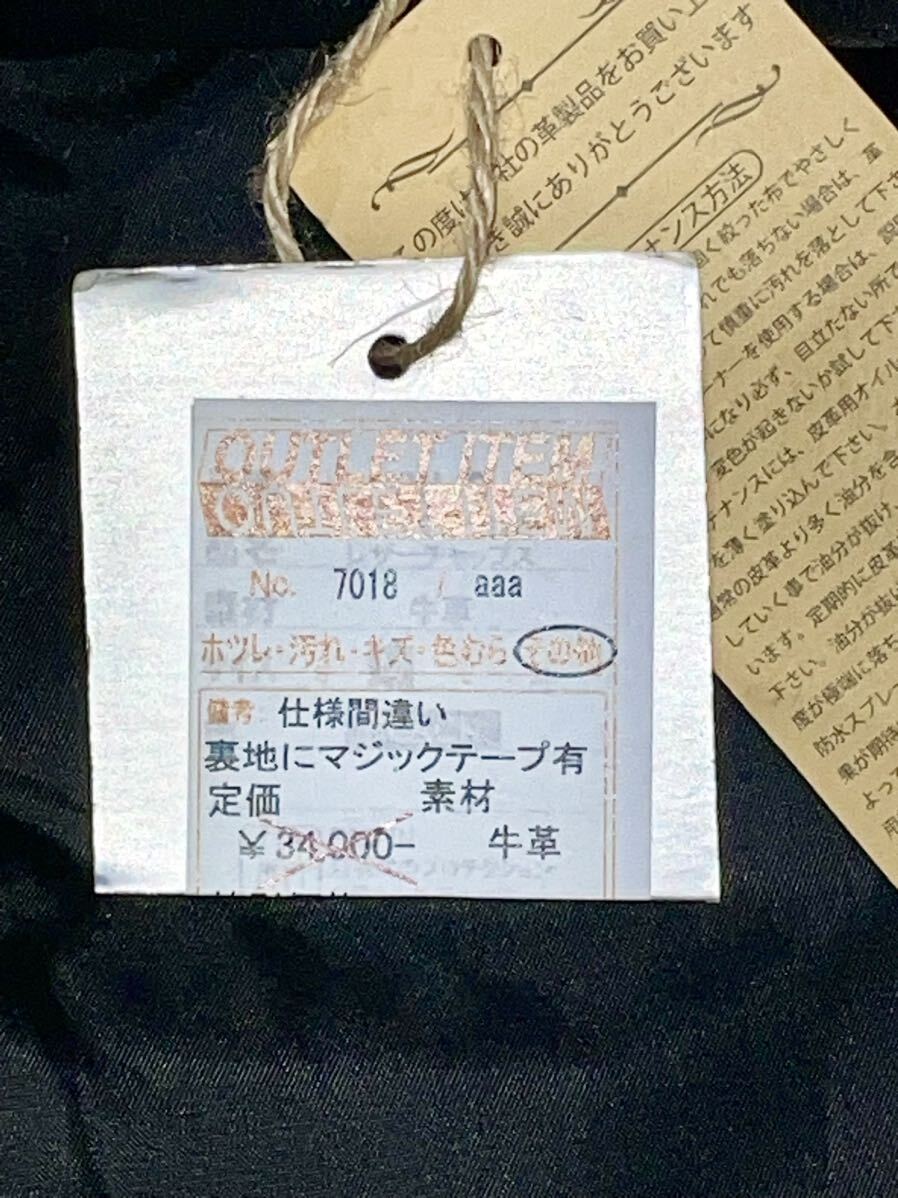 この度は
社の革製品をお買い上
き誠にありがとうございます
ナンス方法
固く絞った布でやさしく
れでも落ちない場合は、革
て慎重に汚れを落として下さ
ーナーを使用する場合は、説明
になり必ず、目立たない所で
変色が起きないか試して下さ
テナンスには、皮革用オイル
を薄く塗り込んで下さい。
通常の皮革より多く油分を含
していく事で油分が抜け、
います。定期的に皮革
下さい。油分が抜け
度が極端に落ち
防水スプレー
果が期待
よって
用
OUTLET ITEM
No. 7018 / aaa
ホツレ・汚れ・キズ・色むら その他
備考 仕様間違い
裏地にマジックテープ有
定価 素材
¥34,000- 牛革
レザーチャップス
牛革